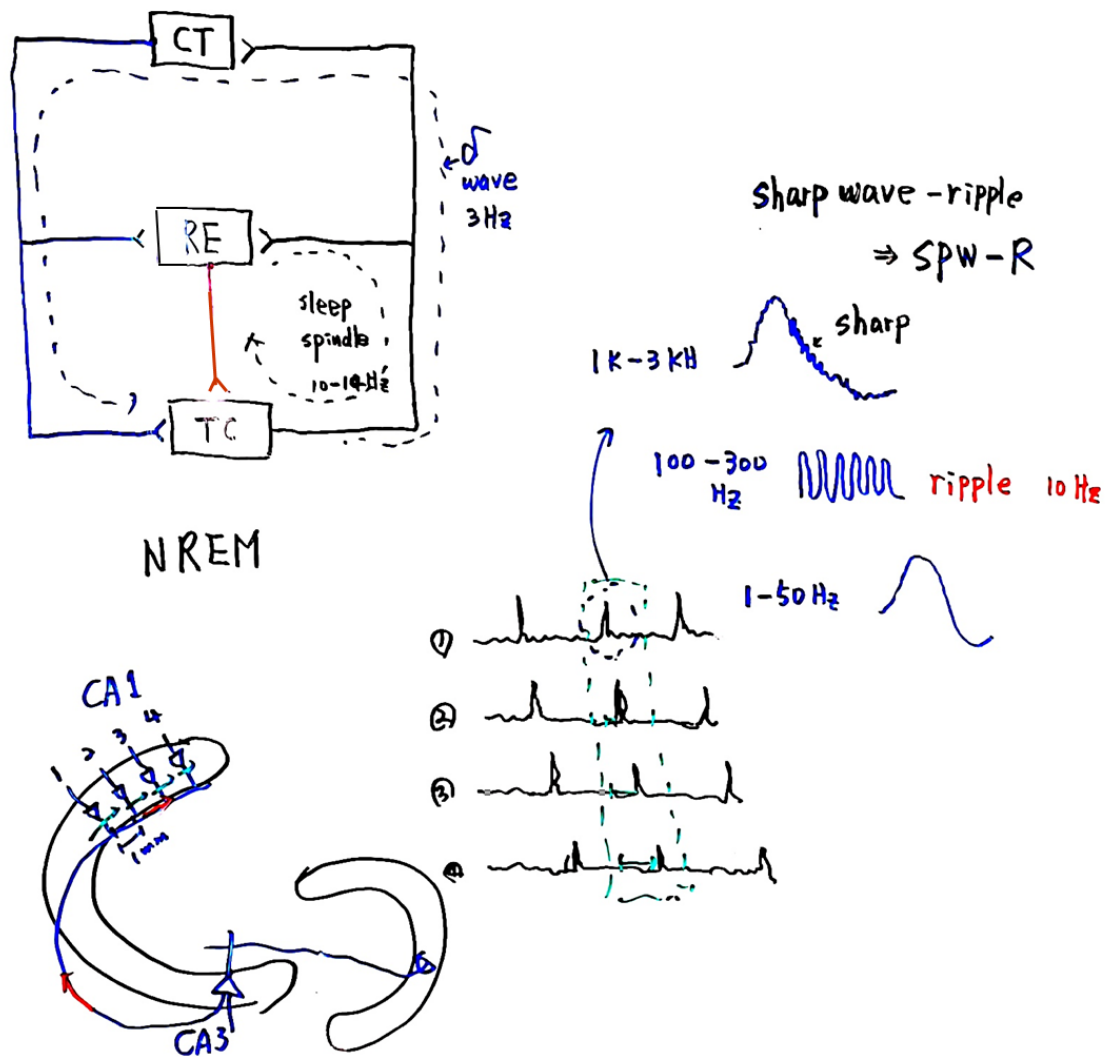 CT
δ
wave
3Hz
RE
sleep
spindle
10-14Hz
TC
NREM
sharp wave-ripple
⇒ SPW-R
sharp
1K-3KH
100-300
Hz
ripple 10Hz
1-50Hz
①
②
③
④
CA1
1 2 3 4
1mm
CA3